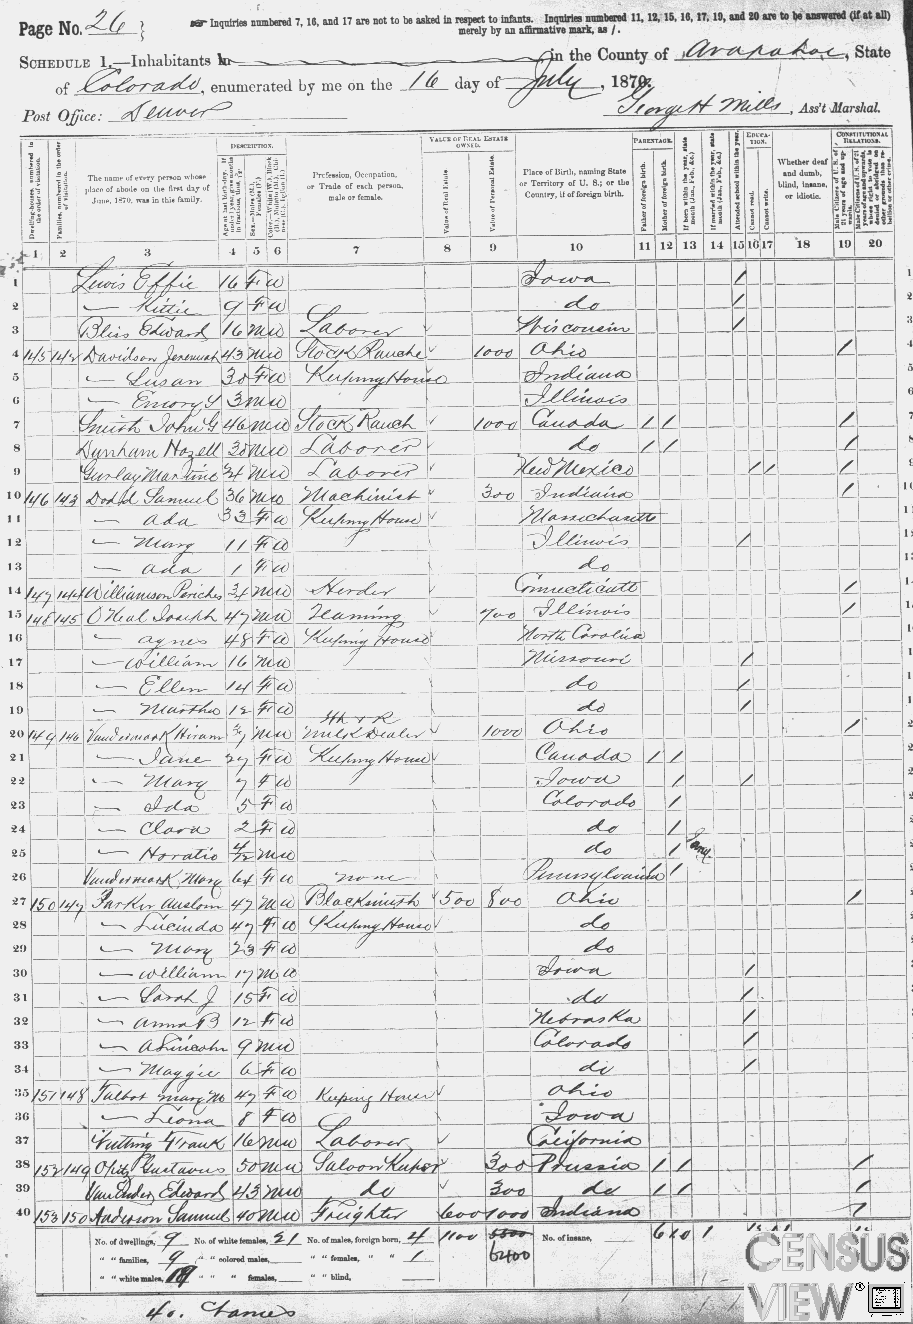 Page No. 26
Inquiries numbered 7, 16, and 17 are not to be asked in respect to infants. Inquiries numbered 11, 12, 15, 16, 17, 19, and 20 are to be answered (if at all) merely by an affirmative mark, as /.
SCHEDULE 1.—Inhabitants in in the County of Arapahoe, State
of Colorado, enumerated by me on the 16 day of July, 1870.
Post Office: Denver George H Mills, Ass't Marshal.
Dwelling-houses, numbered in the order of visitation.
Families, numbered in the order of visitation.
The name of every person whose place of abode on the first day of June, 1870, was in this family.
DESCRIPTION.
Profession, Occupation, or Trade of each person, male or female.
VALUE OF REAL ESTATE OWNED.
Value of Real Estate
Value of Personal Estate
Place of Birth, naming State or Territory of U. S.; or the Country, if of foreign birth.
PARENTAGE.
Father of foreign birth.
Mother of foreign birth.
If born within the year, state month (Jan., Feb., &c.)
If married within the year, state month (Jan., Feb., &c.)
Attended school within the year.
EDUCATION.
Cannot read.
Cannot write.
Whether deaf and dumb, blind, insane, or idiotic.
CONSTITUTIONAL RELATIONS.
1 2 3 4 5 6 7 8 9 10 11 12 13 14 15 16 17 18 19 20
1 Lewis Effie 16 F W Iowa /
2 — Kittie 9 F W do /
3 Bliss Edward 16 M W Laborer Wisconsin /
4 145 142 Davidson Jeremiah 43 M W Stock Ranche 1000 Ohio /
5 — Susan 30 F W Keeping House Indiana
6 — Emory S 3 M W Illinois
7 Smith John G 46 M W Stock Ranch 1000 Canada / / /
8 Dunham Hozell 38 M W Laborer do / / /
9 Gurlay Martine 24 M W Laborer New Mexico / / /
10 146 143 Dodd Samuel 36 M W Machinist 300 Indiana /
11 — Ada 33 F W Keeping House Massachusetts
12 — Mary 11 F W Illinois /
13 — Ada 1 F W do
14 147 144 Williamson Perichas 34 M W Herder Connecticutt /
15 148 145 O'Neal Joseph 47 M W Teaming 700 Illinois /
16 — Agnes 48 F W Keeping House North Carolina
17 — William 16 M W Missouri /
18 — Ellen 14 F W do /
19 — Martha 12 F W do /
20 149 146 Vandermark Hiram 37 M W Stk & R Milk Dealer 1000 Ohio /
21 — Jane 27 F W Keeping House Canada / /
22 — Mary 7 F W Iowa / /
23 — Ida 5 F W Colorado /
24 — Clara 2 F W do /
25 — Horatio 4/12 M W do / Jany
26 Vandermark Mary 64 F W none Pennsylvania /
27 150 147 Parker Auslom 47 M W Blacksmith 500 800 Ohio /
28 — Lucinda 47 F W Keeping House do
29 — Mary 23 F W do
30 — William 17 M W Iowa /
31 — Sarah J 15 F W do /
32 — Anna B 12 F W Nebraska /
33 — A Lincoln 9 M W Colorado /
34 — Maggie 6 F W do /
35 151 148 Talbot Mary M 47 F W Keeping House Ohio
36 — Leona 8 F W Iowa
37 Nutting Frank 16 M W Laborer California
38 152 149 Opitz Gustavus 50 M W Saloon Keeper 300 Prussia / / /
39 VanEnder Edward 43 M W do 300 do / / /
40 153 150 Anderson Samuel 40 M W Freighter 600 1000 Indiana /
No. of dwellings, 9 No. of white females, 21 No. of males, foreign born, 4 1100 5500 No. of insane, 6 10 1
" " families, 9 " " colored males, " " females, " " 1 6400
" " white males, 19 " " " females, " " blind,
40. Names
CENSUS
VIEW®